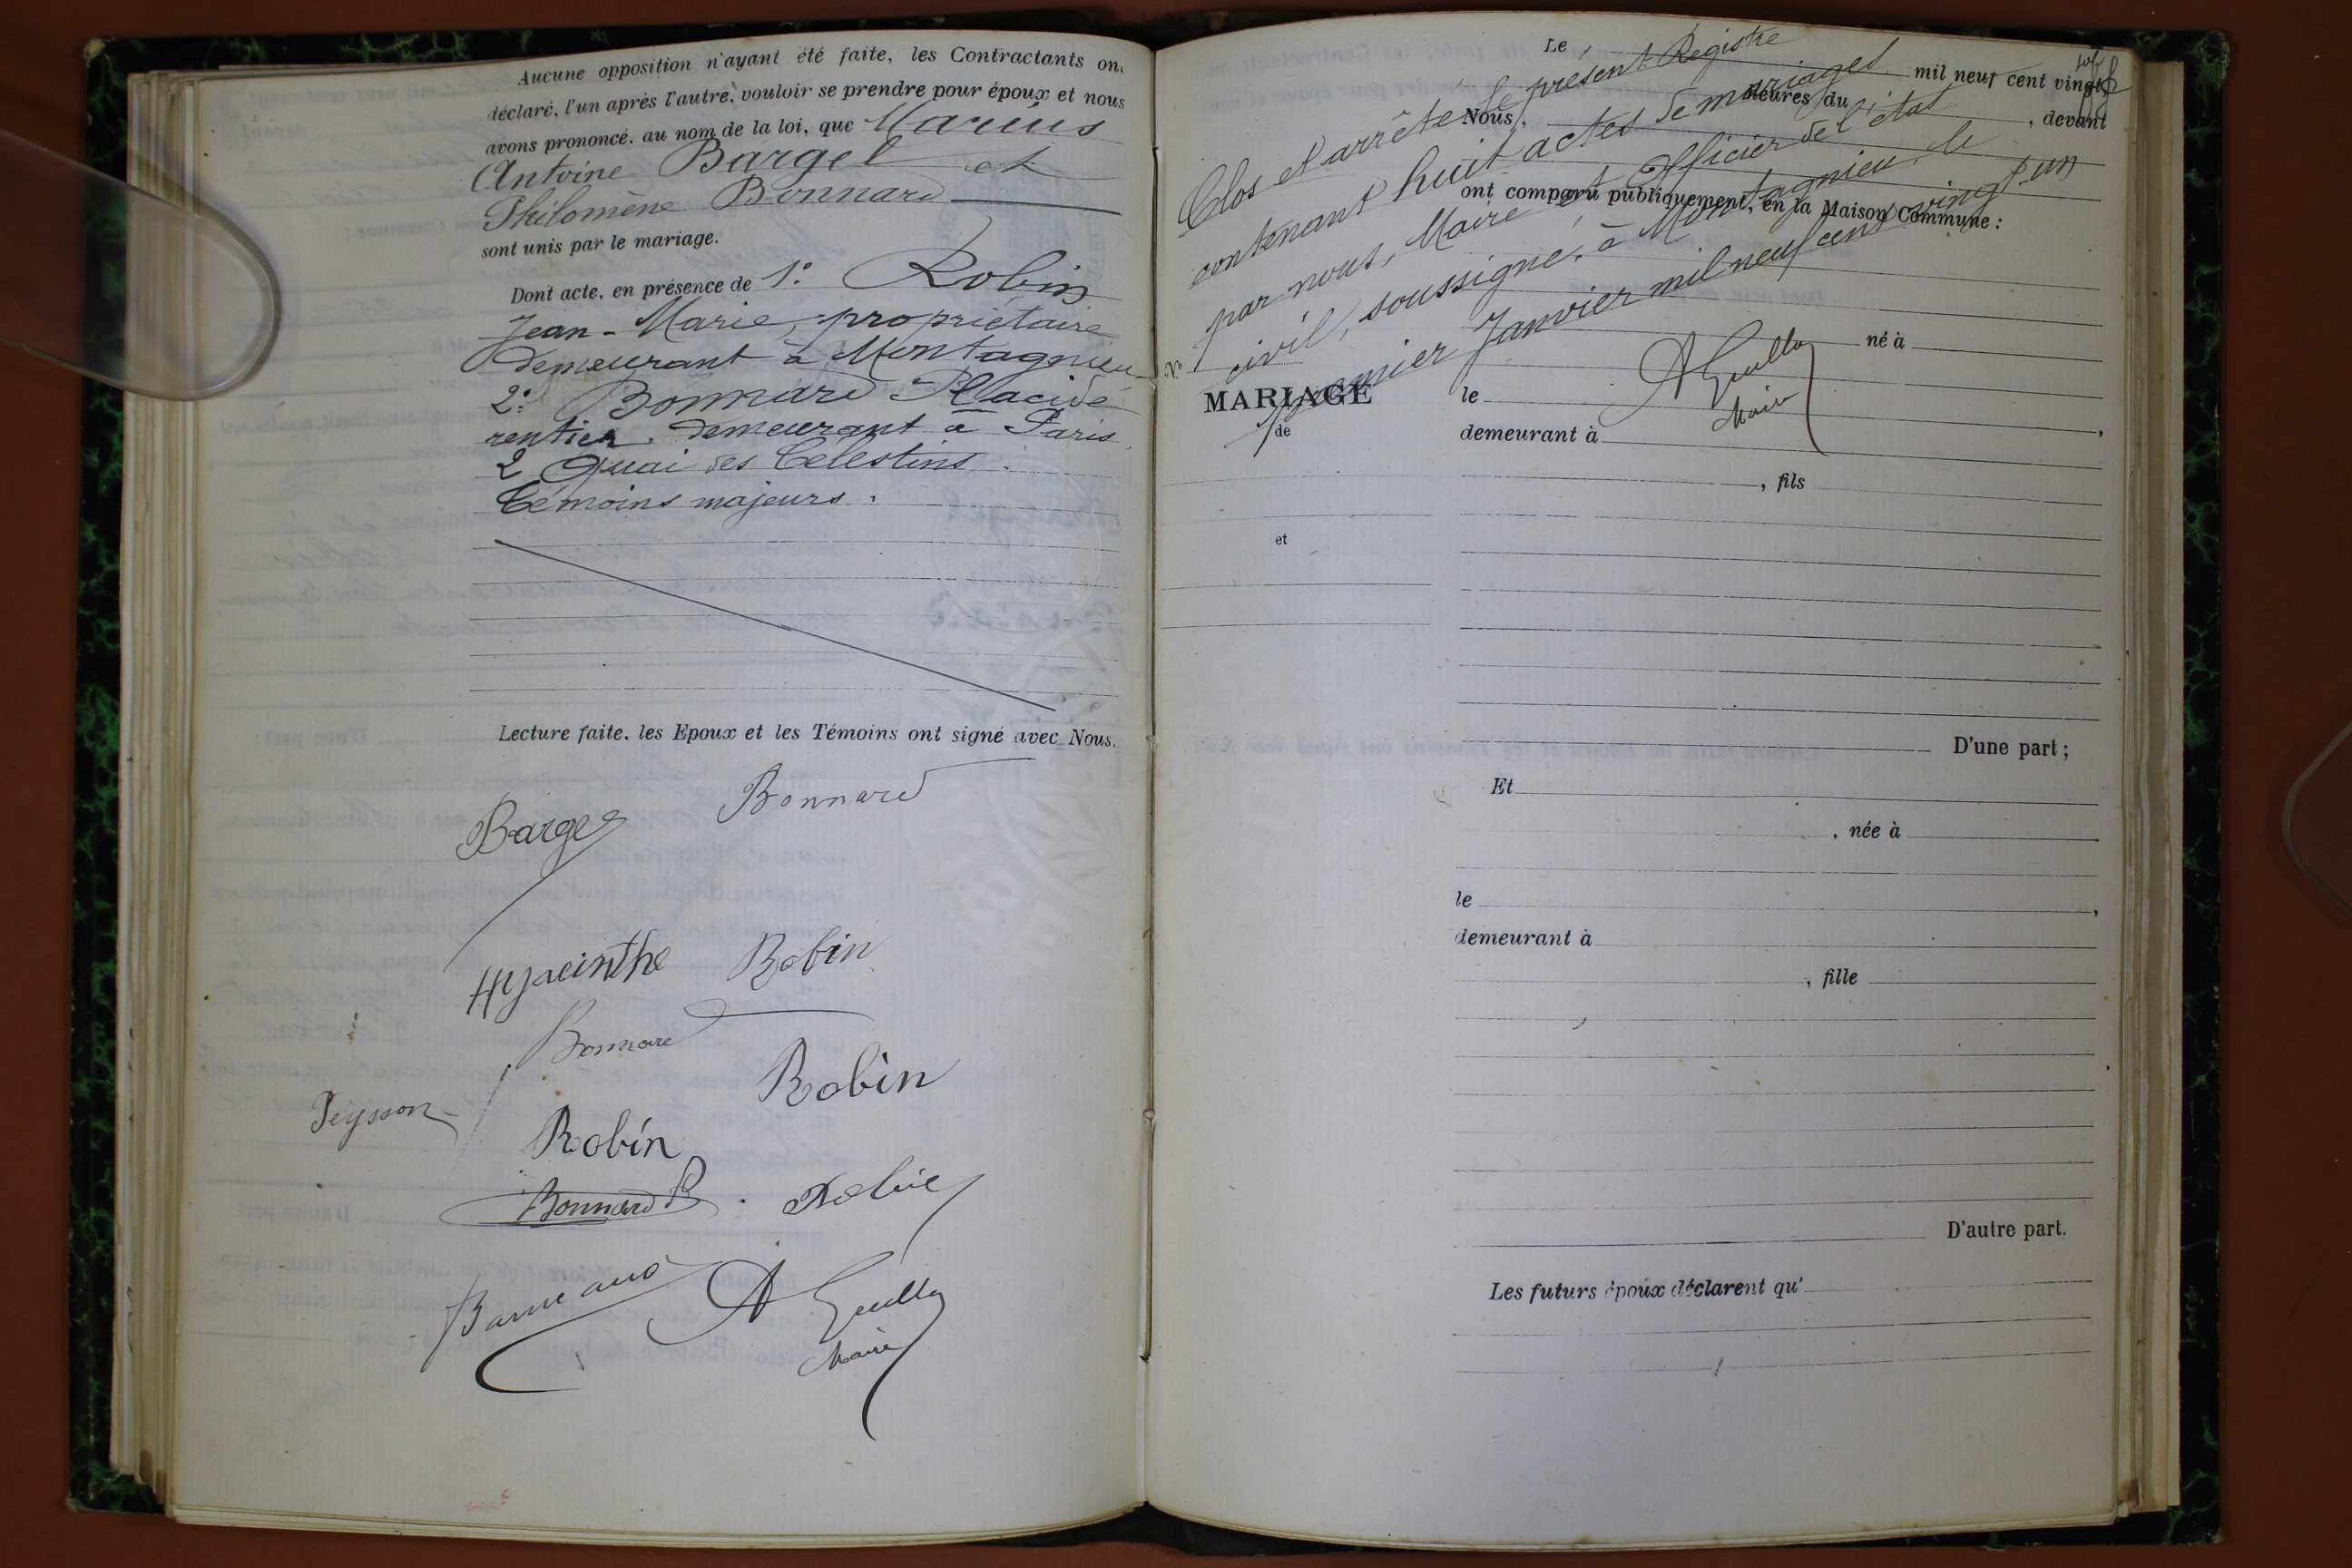 Aucune opposition n'ayant été faite, les Contractants on
déclaré, l'un après l'autre, vouloir se prendre pour époux et nous
avons prononcé, au nom de la loi, que Marius
Antoine Bargel et
Philomène Bonnard
sont unis par le mariage.
Dont acte, en présence de 1.° Robin
Jean-Marie, propriétaire
demeurant à Montagnieu
2.° Bonnard Placide
rentier demeurant à Paris
2 Quai des Célestins.
Témoins majeurs.
Lecture faite, les Epoux et les Témoins ont signé avec Nous.
Bonnard
Bargel
Hyacinthe Robin
Bonnard
Robin
Peysson
Robin
Bonnard P
Robin
A Guilly
Maire
Le
mil neuf cent vingt
heures du
Nous,
, devant
ont comparu publiquement, en la Maison Commune :
Clos et arrêté le présent Registre
contenant huit actes de mariages
par nous, Maire et Officier de l'état
civil, soussigné, à Montagnieu le
premier Janvier mil neuf cent vingt un
A Guilly
Maire
N°
MARIAGE
de
et
né à
le
demeurant à ,
, fils
D'une part ;
Et
, née à
le ,
demeurant à
, fille
D'autre part.
Les futurs époux déclarent qu'